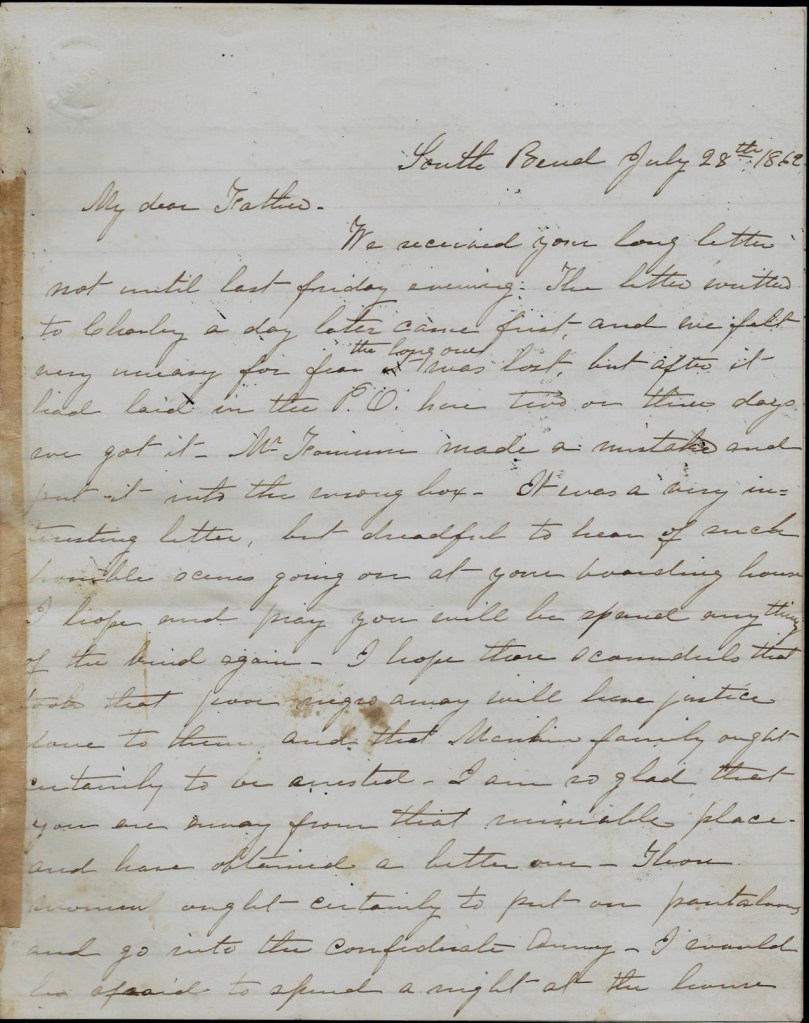 South Bend July 28th 1862.
My dear Father-
We received your long letter
not until last friday evening. The letter written
to Charley a day later came first, and we felt
very uneasy for fear the long one was lost, but after it
had laid in the P.O. here two or three days
we got it- Mr made a mistake and
put it into the wrong box- It was a very in=
teresting letter, but dreadful to hear of such
horrible scenes going on at your boarding house
I hope and pray you will be spared any thing
of the kind again- I hope those scoundrels that
took that poor negro away will have justice
done to them, and that family ought
certainly to be arrested- I am so glad that
you are away from that miserable place-
and have obtained a better one- Those
women ought certainly to put on pantaloons
and go into the confederate Army- I would
be afraid to spend a night at the house